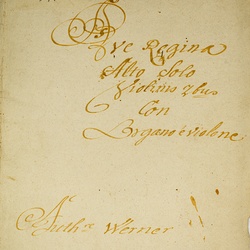 Ave Regina
Alto Solo
Violinis 2bus
Con
Organo è violone
Auth: Werner